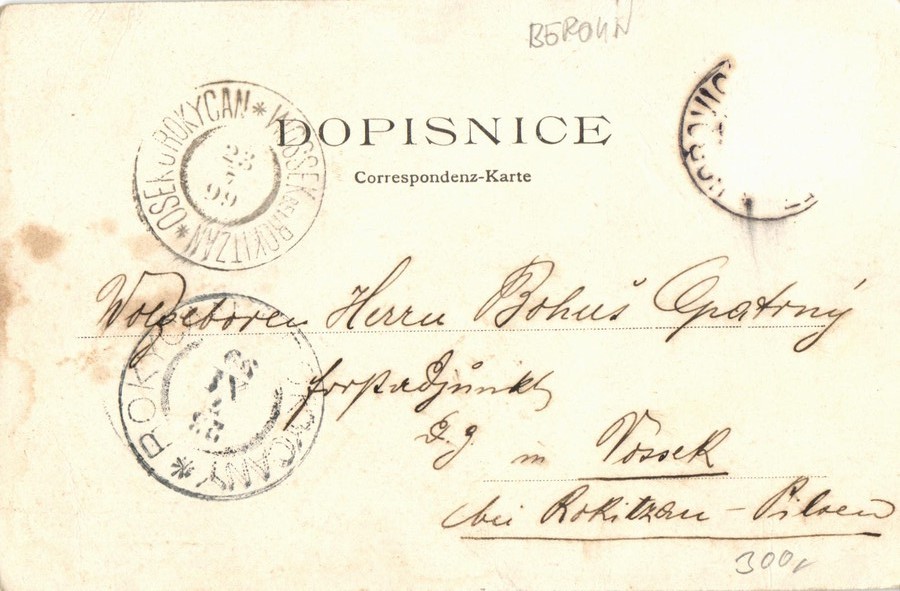 BEROUN
DOPISNICE
Correspondenz-Karte
OSEK U ROKYCAN * WOSSEK BEI ROKITZAN *
23
7
99
Wolgeboren Herrn Bohuš Opatrný
forstadjunkt
in Vossek
bei Rokitzan - Pilsen
ROKYCANY *
300,